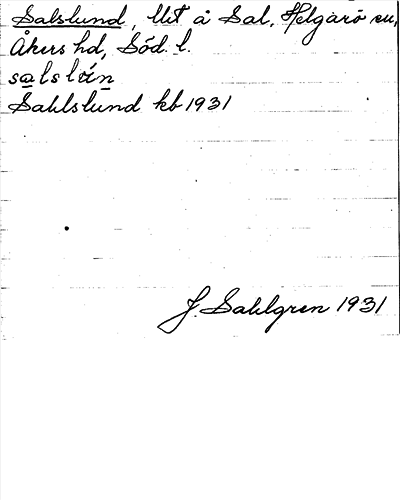 Salslund, llt å Sal, Helgarö sn,
Åkers hd, Söd. l.
salslún
Sahlslund kb 1931
J. Sahlgren 1931